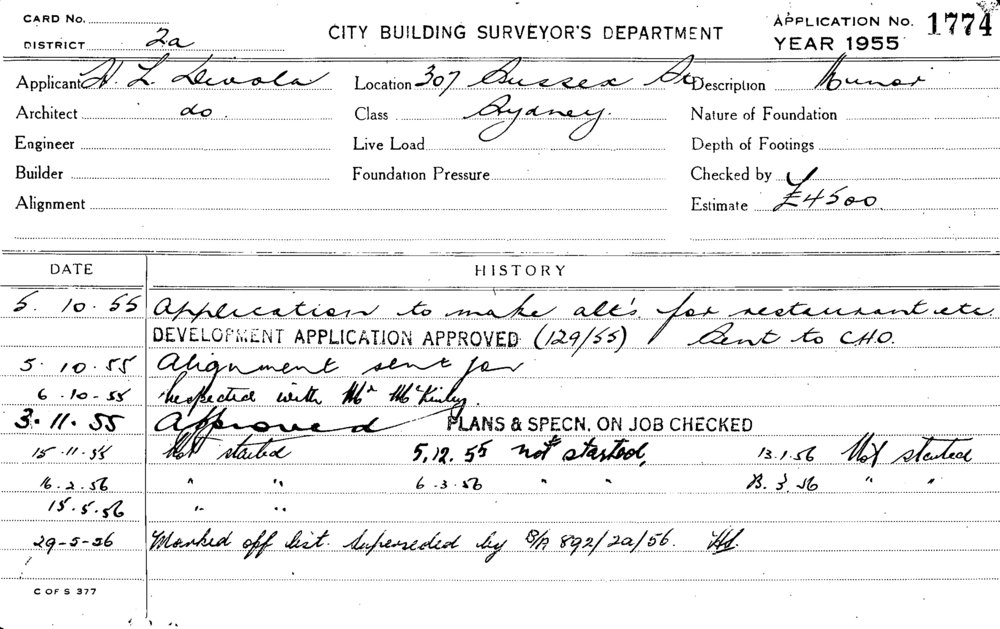 CARD No.
DISTRICT 2a
CITY BUILDING SURVEYOR'S DEPARTMENT
APPLICATION No. 1774
YEAR 1955
Applicant H. L. Devola Location 307 Sussex St Description Minor
Architect do. Class Sydney. Nature of Foundation
Engineer Live Load Depth of Footings
Builder Foundation Pressure Checked by
Alignment Estimate £4500.
DATE HISTORY
5. 10. 55 Application to make alt's. for restaurant etc.
DEVELOPMENT APPLICATION APPROVED (129/55) Sent to CHO.
5. 10. 55 Alignment sent for
6. 10. 55 Inspected with Mr McKinley.
3. 11. 55 Approved PLANS & SPECN. ON JOB CHECKED
15. 11. 55 Not started 5. 12. 55 not started, 13. 1. 56 Not started
16. 2. 56 " " 6. 3. 56 " " 3. 56 " "
15. 5. 56 " "
29-5-56 Marked off list. Superseded by B/A 892/2a/56.
C OF S 377